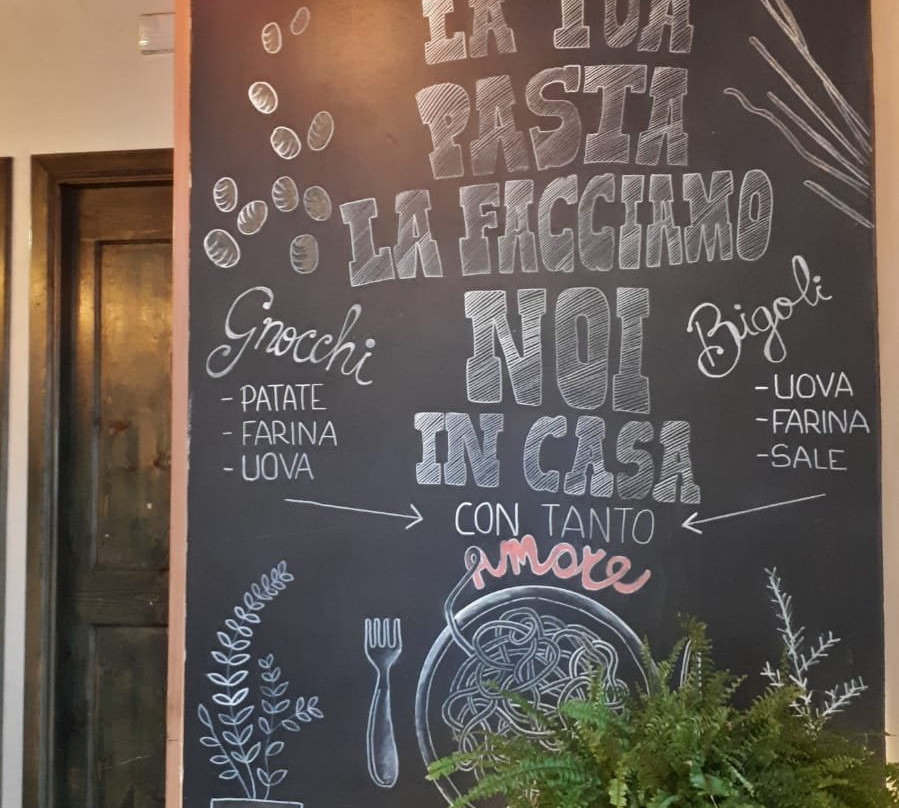 LA TUA
PASTA
LA FACCIAMO
NOI
IN CASA
CON TANTO
amore
Gnocchi
- PATATE
- FARINA
- UOVA
Bigoli
- UOVA
- FARINA
- SALE